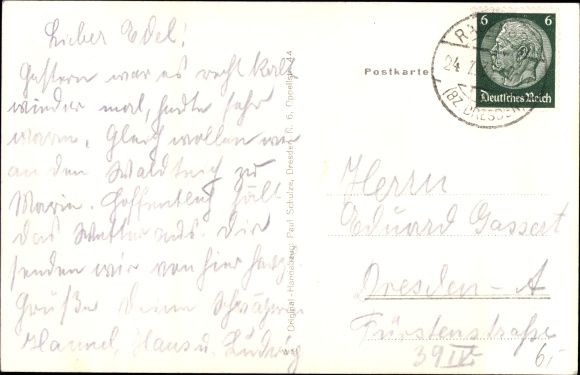 Lieber Edel!
Gestern war es recht kalt
wieder mal, heute sehr
warm. Gleich wollen wir
an den Waldteich zu
Marie. Hoffentlich hält
das Wetter aus. Dir
senden wir von hier herzl.
Grüße Deine Schwägerin
Hannel, Hans u. Ludwig
Original-Handabzug: Paul Schulze, Dresden A. 6,
Postkarte
24
(BZ. DRESDEN)
6 6
Deutsches Reich
Herrn
Eduard Gassert
Dresden-A
Fürstenstraße
39 IV
6,-